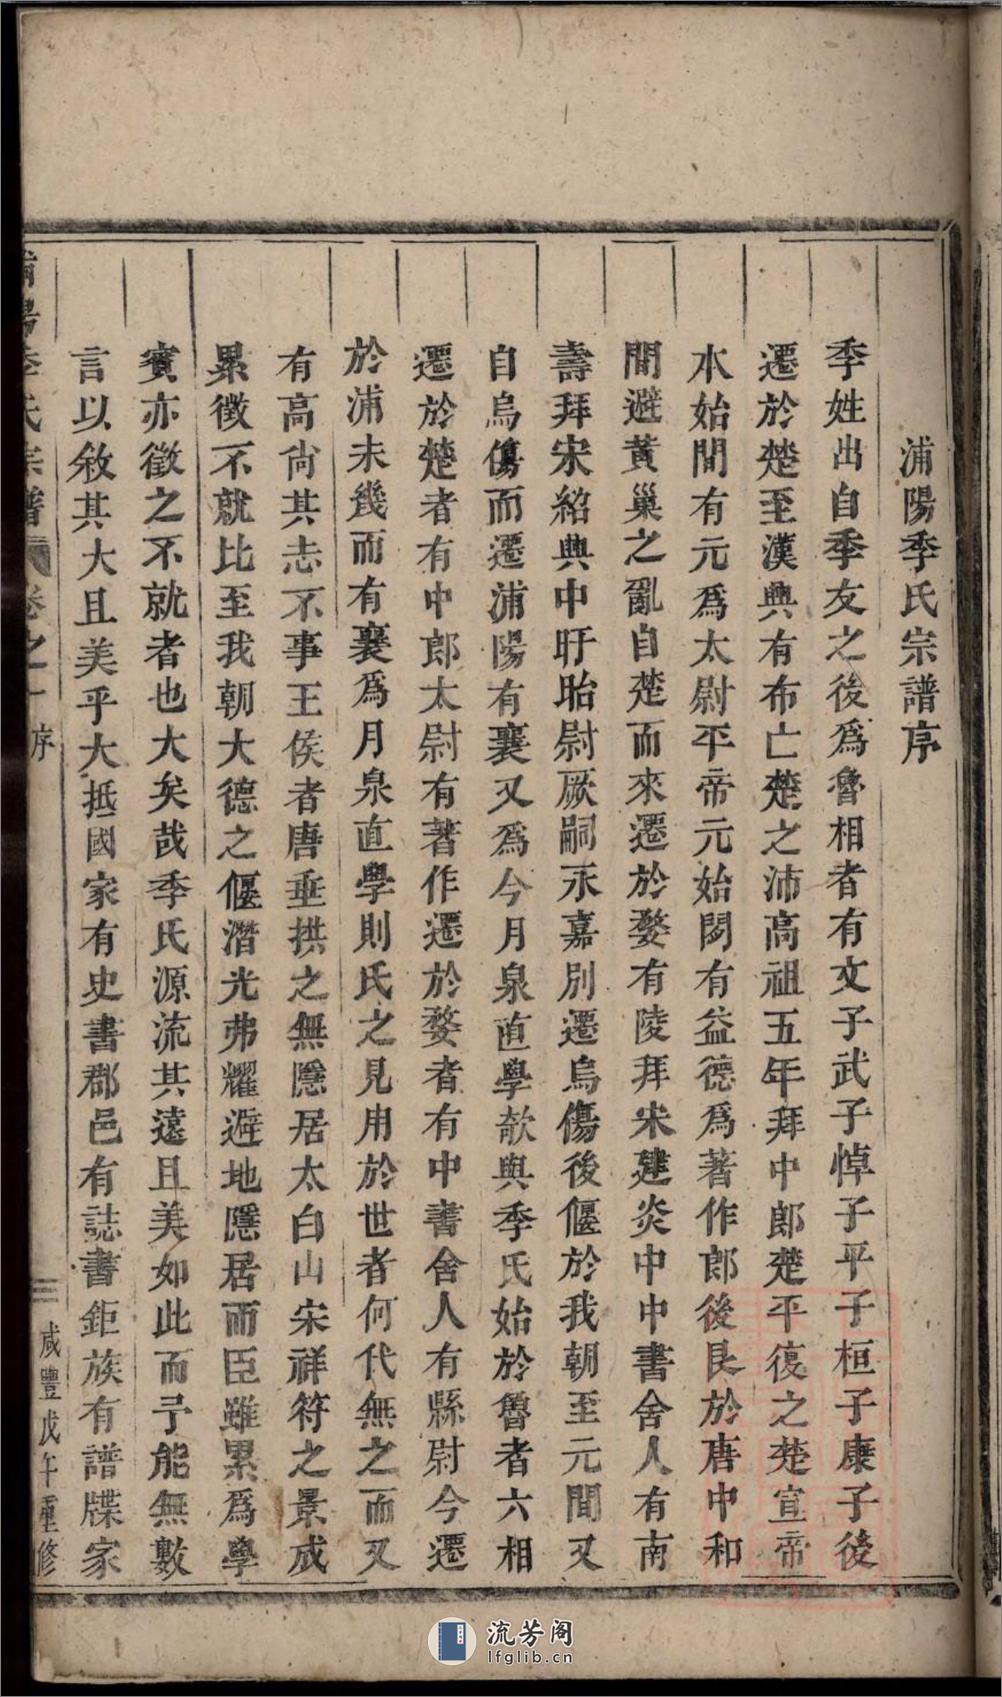 浦陽季氏宗譜序
季姓出自季友之後爲魯相者有文子武子悼子平子桓子康子後
遷於楚至漢興有布亡楚之沛高祖五年拜中郎楚平復之楚宣帝
水始間有元爲太尉平帝元始閎有益德爲著作郎後艮於唐中和
間避黃巢之亂自楚而來遷於婺有陵拜宋建炎中中書舍人有南
壽拜宋紹興中盱眙尉厥嗣永嘉別遷烏傷後偃於我朝至元間又
自烏傷而遷浦陽有襄又爲今月泉直學歆與季氏始於魯者六相
遷於楚者有中郎太尉有著作遷於婺者有中書舍人有縣尉今遷
於浦未幾而有襄爲月泉直學則氏之見用於世者何代無之而又
有高尚其志不事王侯者唐垂拱之無隱居太白山宋祥符之景成
累徵不就比至我朝大德之偃潛光弗耀避地隱居而臣雖累爲學
賓亦徵之不就者也大矣哉季氏源流其遠且美如此而予能無數
言以敘其大且美乎大抵國家有史書郡邑有誌書鉅族有譜牒家
浦陽季氏宗譜 卷之一 序 三 咸豐戊午重修
流芳阁
lfglib.cn